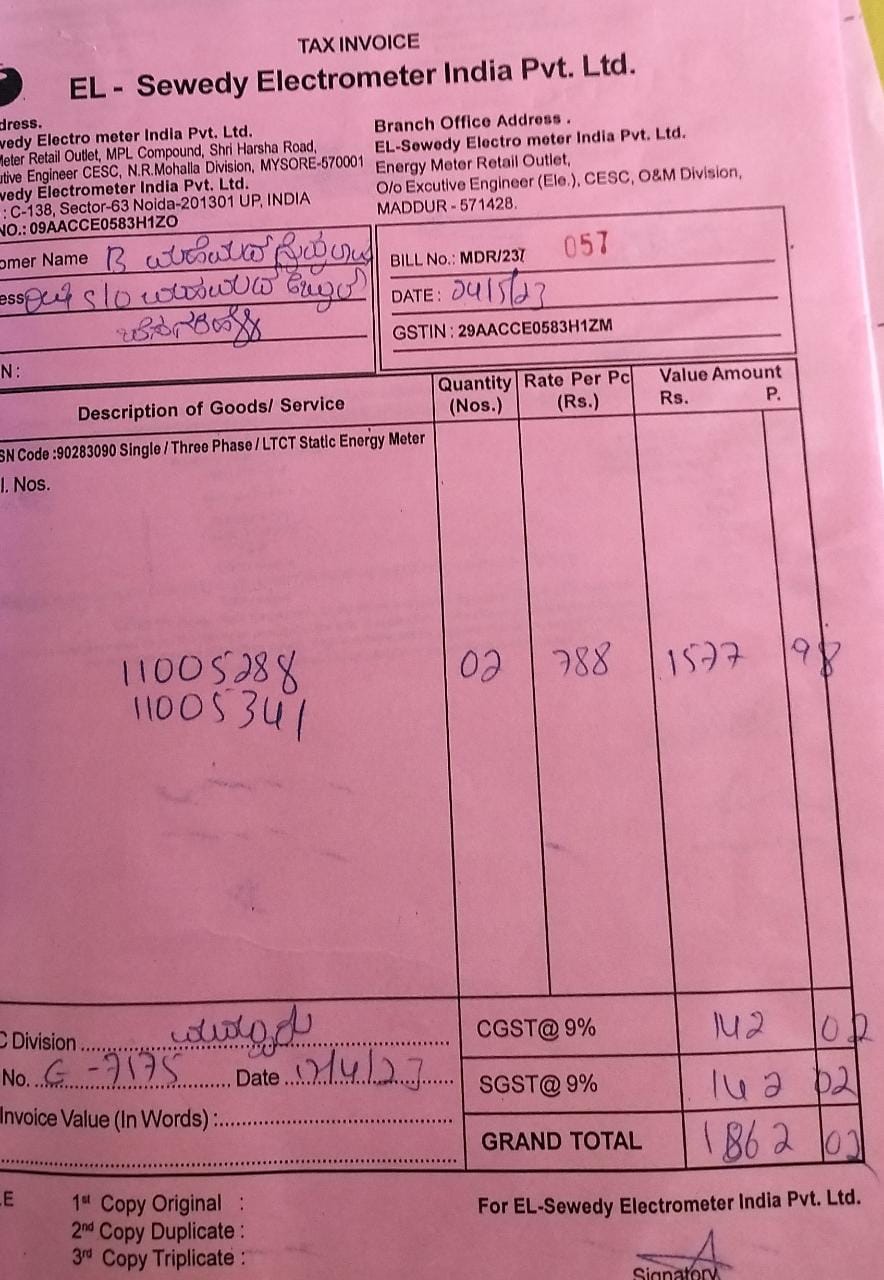 TAX INVOICE
EL - Sewedy Electrometer India Pvt. Ltd.
dress.
wedy Electro meter India Pvt. Ltd.
Meter Retail Outlet, MPL Compound, Shri Harsha Road,
utive Engineer CESC, N.R.Mohalla Division, MYSORE-570001
wedy Electrometer India Pvt. Ltd.
: C-138, Sector-63 Noida-201301 UP, INDIA
NO.: 09AACCE0583H1ZO
Branch Office Address .
EL-Sewedy Electro meter India Pvt. Ltd.
Energy Meter Retail Outlet,
O/o Excutive Engineer (Ele.), CESC, O&M Division,
MADDUR - 571428.
omer Name B
ess S/O
N :
BILL No.: MDR/237 057
DATE : 24/5/23
GSTIN : 29AACCE0583H1ZM
Description of Goods/ Service Quantity (Nos.) Rate Per Pc (Rs.) Value Amount Rs. P.
SN Code :90283090 Single / Three Phase / LTCT Static Energy Meter
l. Nos.
11005288 02 788 1577 98
11005341
C Division
CGST@ 9% 142 02
No. G-7175 Date 17/4/23
SGST@ 9% 142 02
Invoice Value (In Words) :
GRAND TOTAL 1862 02
E
1st Copy Original :
2nd Copy Duplicate :
3rd Copy Triplicate :
For EL-Sewedy Electrometer India Pvt. Ltd.
Signatory